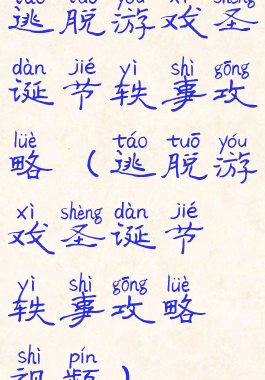 táo tuō yóu xì shèng
逃脱游戏圣
dàn jié yì shì gōng
诞节轶事攻
lüè táo tuō yóu
略（逃脱游
xì shèng dàn jié
戏圣诞节
yì shì gōng lüè
轶事攻略
shì pín
视频）